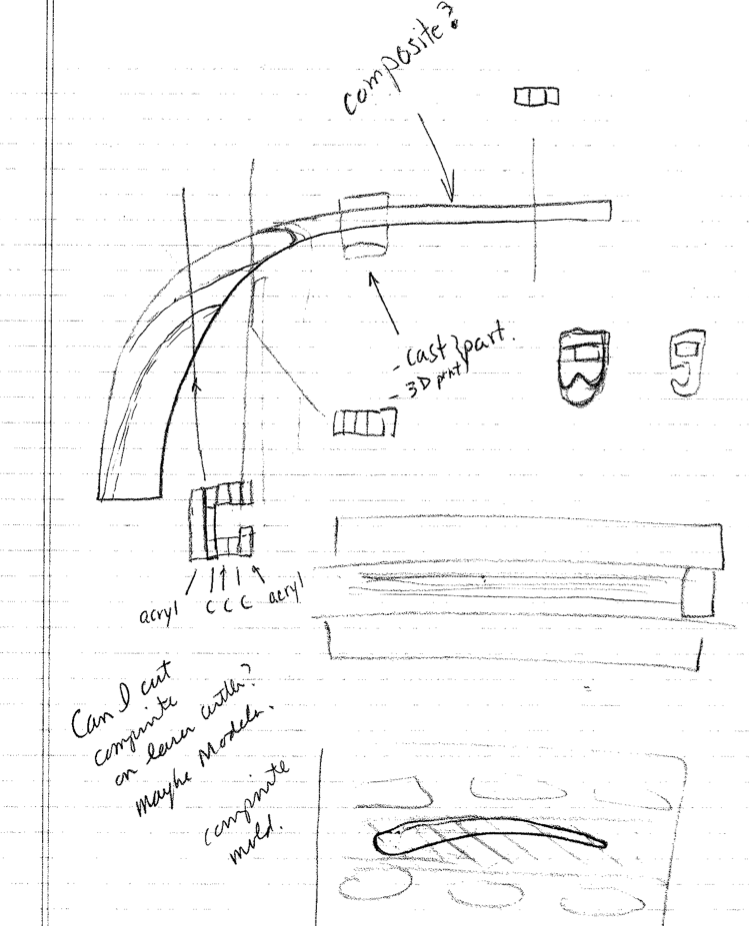 composite?
- cast } part.
- 3D print
acryl C C C acryl
Can I cut
composite
on laser cutter?
Maybe Modela.
composite
mold.